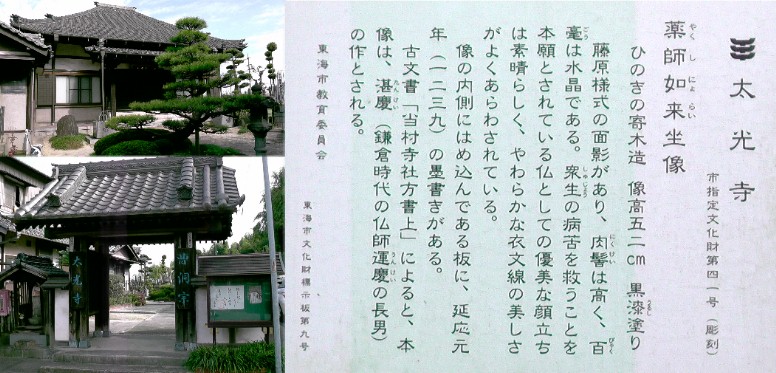 太光寺
市指定文化財第四一号（彫刻）
薬師如来坐像
ひのきの寄木造　像高五二cm　黒漆塗り
藤原様式の面影があり、肉髻は高く、百
毫は水晶である。衆生の病苦を救うことを
本願とされている仏としての優美な顔立ち
は素晴らしく、やわらかな衣文線の美しさ
がよくあらわされている。
像の内側にはめ込んである板に、延応元
年（一二三九）の墨書きがある。
古文書「当村寺社方書上」によると、本
像は、湛慶（鎌倉時代の仏師運慶の長男）
の作とされる。
東海市教育委員会
東海市文化財標示板第九号
曹洞宗